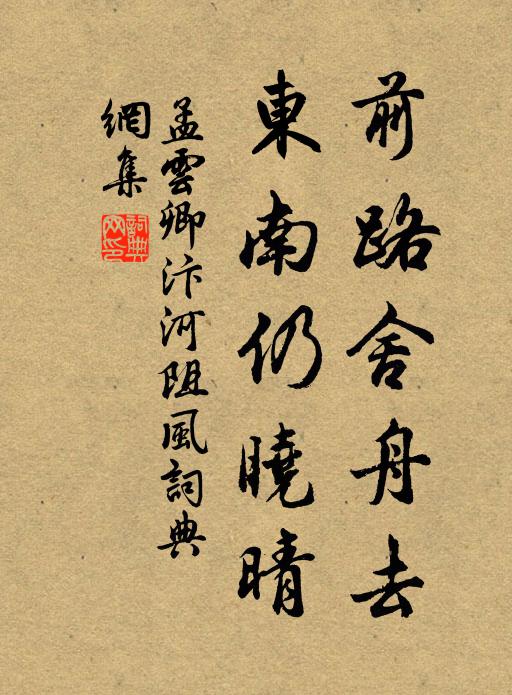 前路舍舟去
東南仍曉晴
孟雲卿汴河阻風詞典
網集
詞典
网印